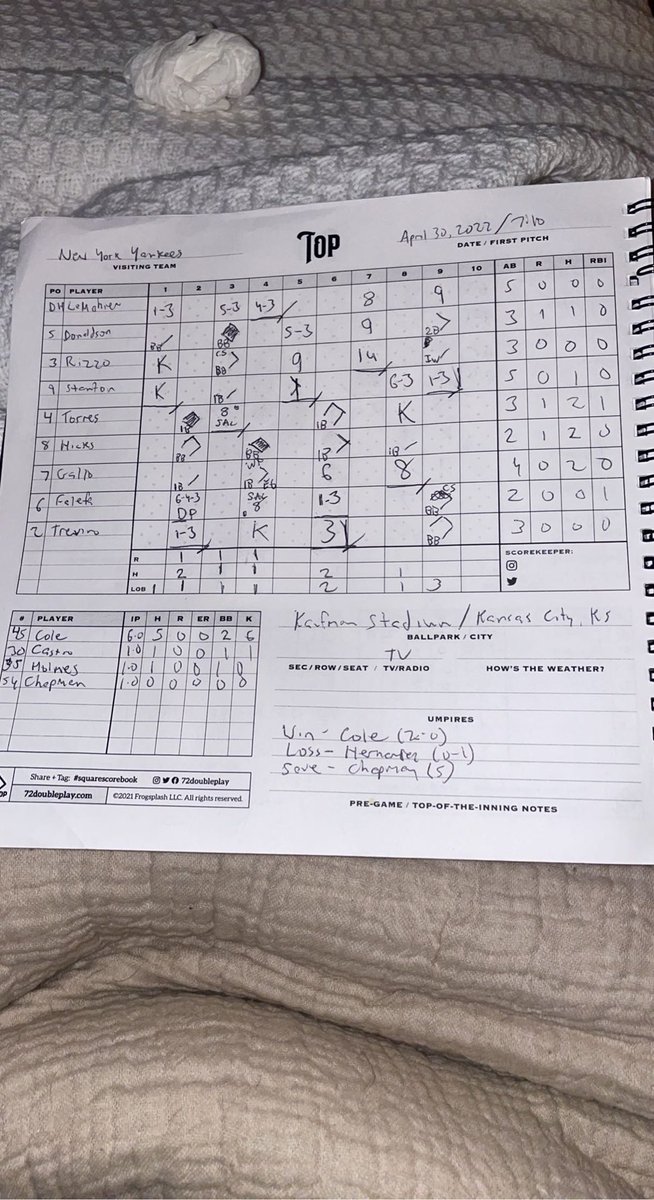 New York Yankees
VISITING TEAM
TOP
April 30, 2022 / 7:10
DATE / FIRST PITCH
PO PLAYER 1 2 3 4 5 6 7 8 9 10 AB R H RBI
DH LeMahieu 1-3 5-3 4-3 8 9 5 0 0 0
5 Donaldson BB BB 5-3 9 2B 3 1 1 0
3 Rizzo K CS BB 9 IW 3 0 0 0
9 Stanton K 1B 6-3 1-3 5 0 1 0
4 Torres 1B 8 SAC 1B K 3 1 2 1
8 Hicks BB BB 1B 1B 2 1 2 0
7 Gallo 1B WP 1B E6 6 8 4 0 2 0
6 6-4-3 DP SAC 8 1-3 CS BB 2 0 0 1
2 Trevino 1-3 K 3 BB 3 0 0 0
R 1 1 1
H 2 1 1 2 1
LOB 1 1 1 1 2 1 3
SCOREKEEPER:
# PLAYER IP H R ER BB K
45 Cole 6.0 5 0 0 2 6
30 Castro 1.0 1 0 0 1 1
35 Holmes 1.0 1 0 0 1 0
54 Chapman 1.0 0 0 0 0 0
Kaufman Stadium / Kansas City, KS
BALLPARK / CITY
TV
SEC/ROW/SEAT / TV/RADIO HOW'S THE WEATHER?
UMPIRES
Win - Cole (2-0)
Loss - Hernandez (0-1)
Save - Chapman (5)
PRE-GAME / TOP-OF-THE-INNING NOTES
Share + Tag: #squarescorebook 72doubleplay
72doubleplay.com ©2021 Frogsplash LLC. All rights reserved.